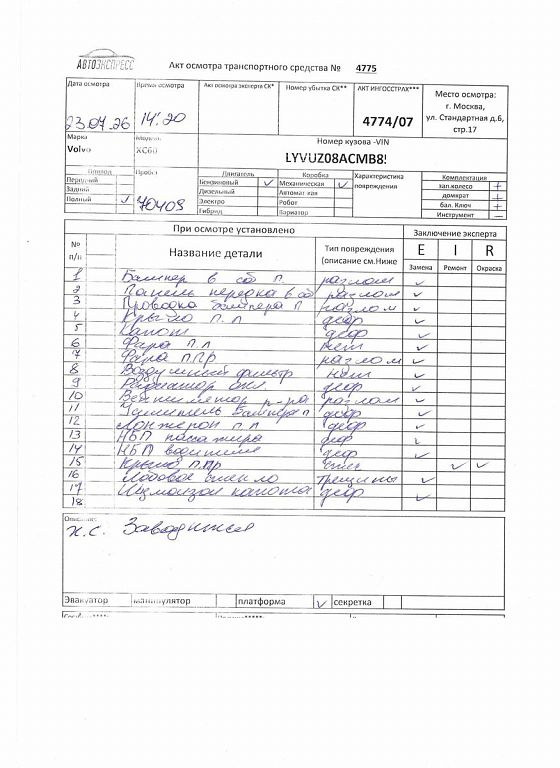 АВТОЭКСПРЕСС
Акт осмотра транспортного средства № 4775
Дата осмотра
Время осмотра
Акт осмотра эксперта СК*
Номер убытка СК**
АКТ ИНГОССТРАХ***
Место осмотра:
г. Москва,
ул. Стандартная д.6,
стр.17
14.20
4774/07
Марка
Модель
Номер кузова -VIN
Volvo
XC60
LYVUZ08ACMB8
Привод
Пробег
Двигатель
Коробка
Характеристика
повреждения
Комплектация
Передний
Бензиновый ✓
Механическая ✓
зап.колесо +
Задний
Дизельный
Автоматная
домкрат +
Полный ✓
70409
Электро
Робот
бал. Ключ +
Гибрид
Вариатор
Инструмент –
При осмотре установлено
Заключение эксперта
№ п/п
Название детали
Тип повреждения
(описание см.Ниже
E I R
Замена Ремонт Окраска
1 Бампер в сб п. разлом ✓
2 Панель передка в сб разлом ✓
3 Проводка бампера п разлом ✓
4 Крыло п.л деф ✓
5 Капот деф ✓
6 Фара п.л нет ✓
7 Фара п.пр разлом ✓
8 Воздушный фильтр нет ✓
9 Радиатор деф ✓
10 разлом ✓
11 Усилитель бампера п деф ✓
12 Лонжерон п.л деф ✓
13 НБП пассажира деф ✓
14 НБП водителя деф ✓
15 Крыло п.пр ✓ ✓
16 Лобовое стекло трещины ✓
17 капота деф ✓
18
Описание:
х.с. Заводится
Эвакуатор манипулятор платформа ✓ секретка